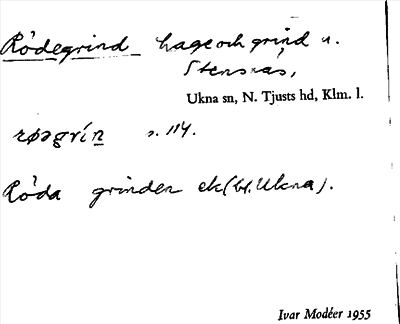 Rödegrind hage och grind u.
Stensnäs,
Ukna sn, N. Tjusts hd, Klm. l.
røəgrín s. 114.
Röda grinden ek(bl. Ukna).
Ivar Modéer 1955